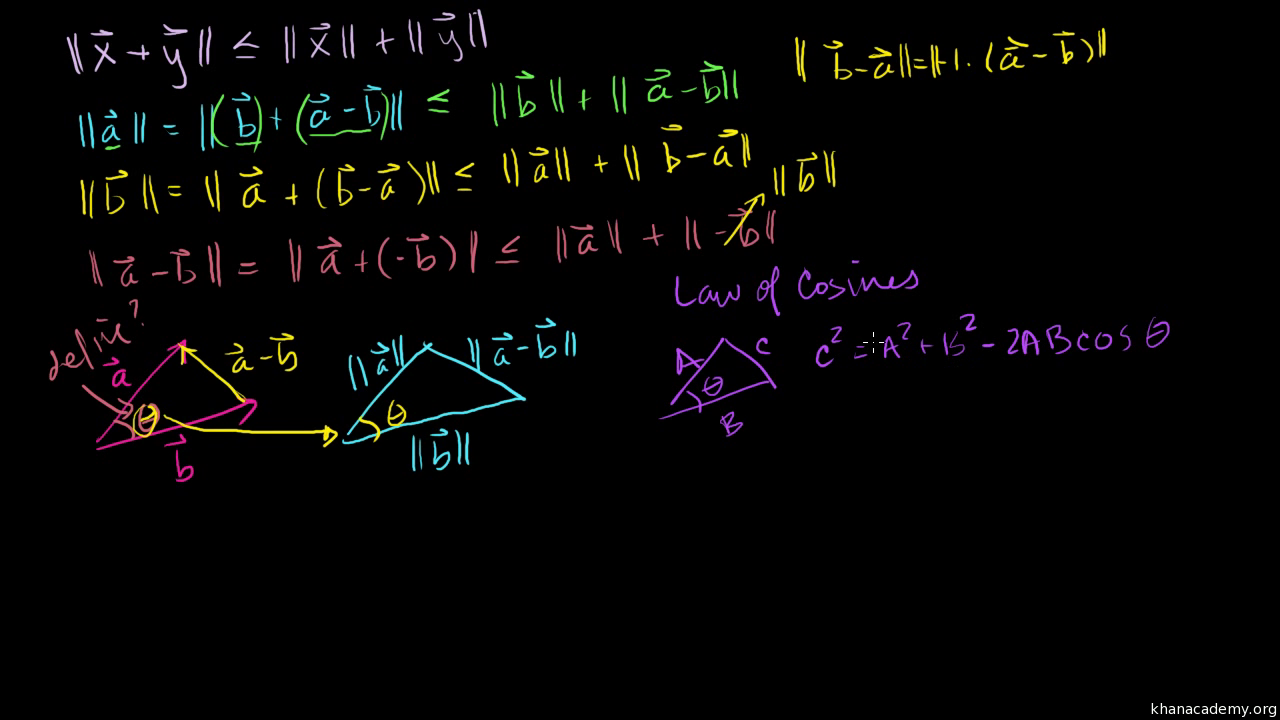 ‖x⃗ + y⃗‖ ≤ ‖x⃗‖ + ‖y⃗‖
‖b⃗ - a⃗‖ = ‖-1 · (a⃗ - b⃗)‖
‖a⃗‖ = ‖(b⃗) + (a⃗ - b⃗)‖ ≤ ‖b⃗‖ + ‖a⃗ - b⃗‖
‖b⃗‖ = ‖a⃗ + (b⃗ - a⃗)‖ ≤ ‖a⃗‖ + ‖b⃗ - a⃗‖
‖b⃗‖
‖a⃗ - b⃗‖ = ‖a⃗ + (-b⃗)‖ ≤ ‖a⃗‖ + ‖-b⃗‖
Law of Cosines
define?
a⃗
a⃗ - b⃗
θ
b⃗
‖a⃗‖
‖a⃗ - b⃗‖
θ
‖b⃗‖
A
C
θ
B
C² = A² + B² - 2AB cos θ
khanacademy.org